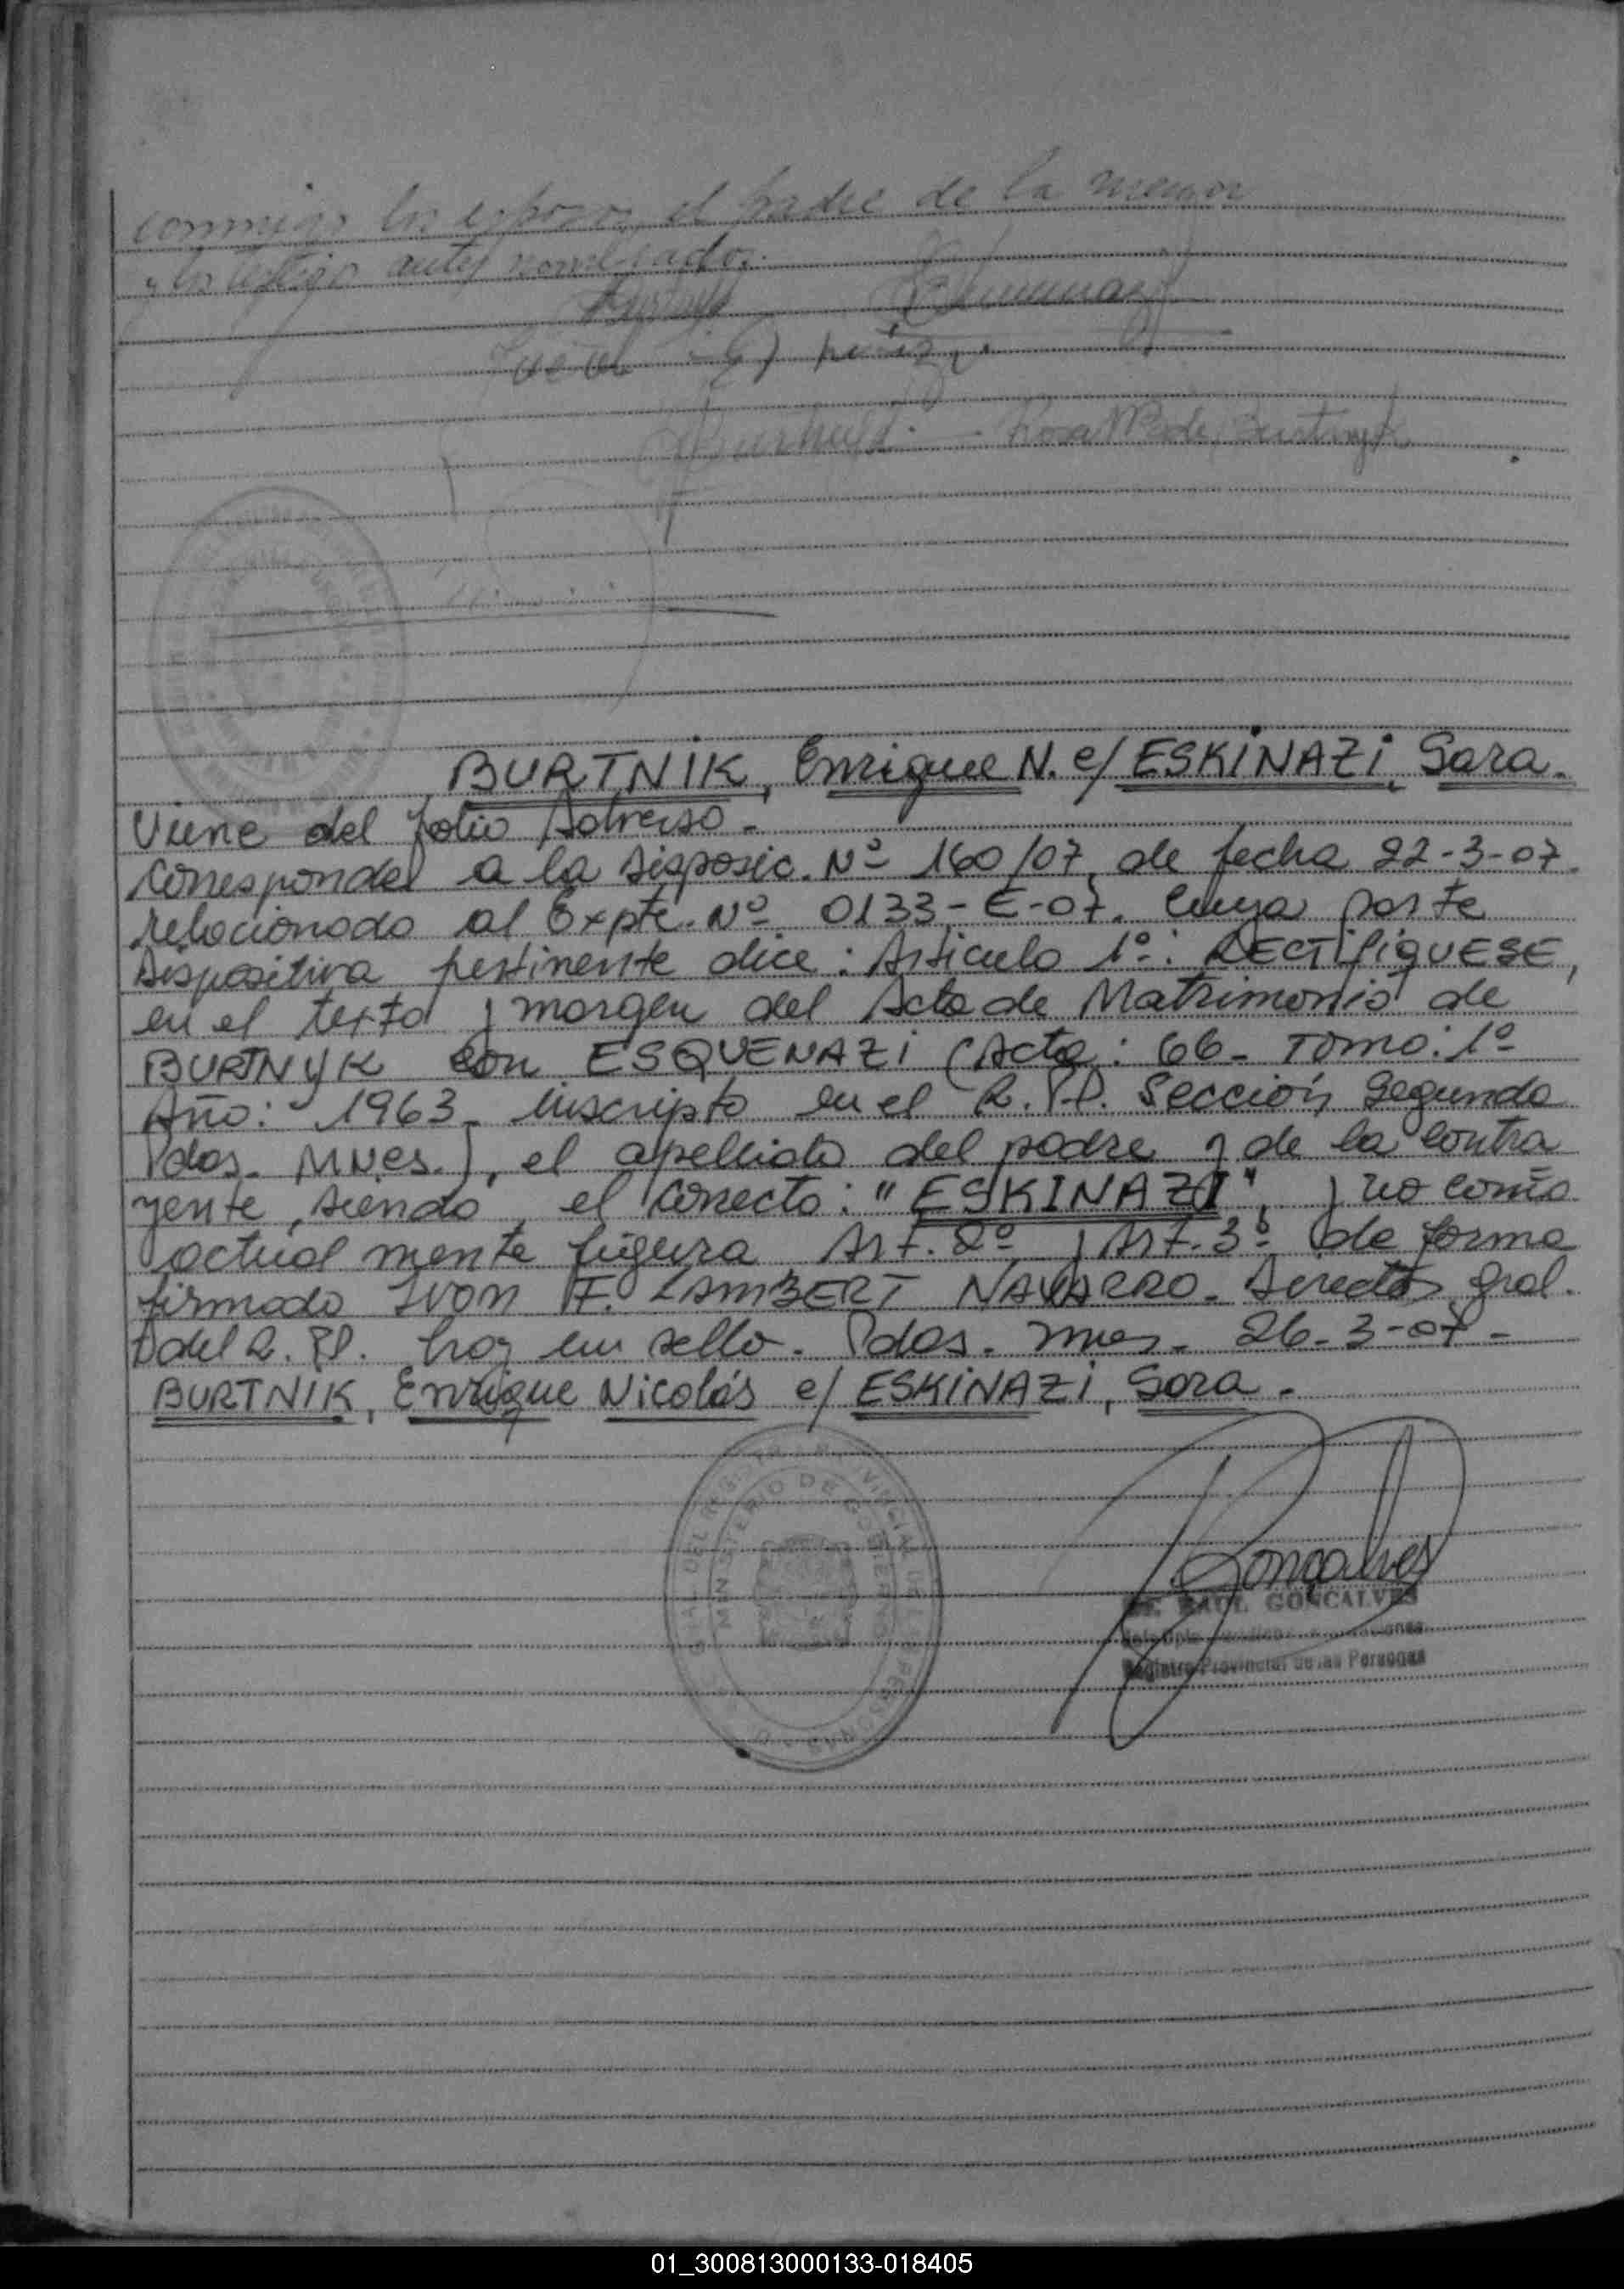 conmigo los esposos, el padre de la menor
y los testigos antes nombrados.
Rosa M. de Burtnyk
BURTNIK, Enrique N. c/ ESKINAZI, Sara.
Viene del folio Adverso -
Corresponde a la Disposic. Nº 160/07, de fecha 22-3-07.
relacionado al Expte. Nº 0133-E-07. Cuya parte
Dispositiva pertinente dice: Articulo 1º: RECTIFIQUESE,
en el texto y margen del Acta de Matrimonio de
BURTNYK con ESQUENAZI (Acta: 66- Tomo: 1º
Año: 1963- inscripto en el R.P.P. Sección Segunda
Pdas. MNES.), el apellido del padre y de la contra
yente, siendo el correcto: "ESKINAZI", y no como
actual mente figura Art. 2º y Art. 3º de forma
firmado Ivon F. LAMBERT NAVARRO. Director Gral.
del R.PP. hay un sello. Pdas. Mnes. 26-3-07-
BURTNIK, Enrique Nicolás c/ ESKINAZI, Sara.
MINISTERIO DE GOBIERNO
Gonçalves
RAUL GONCALVES
Registro Provincial de las Personas
01_300813000133-018405